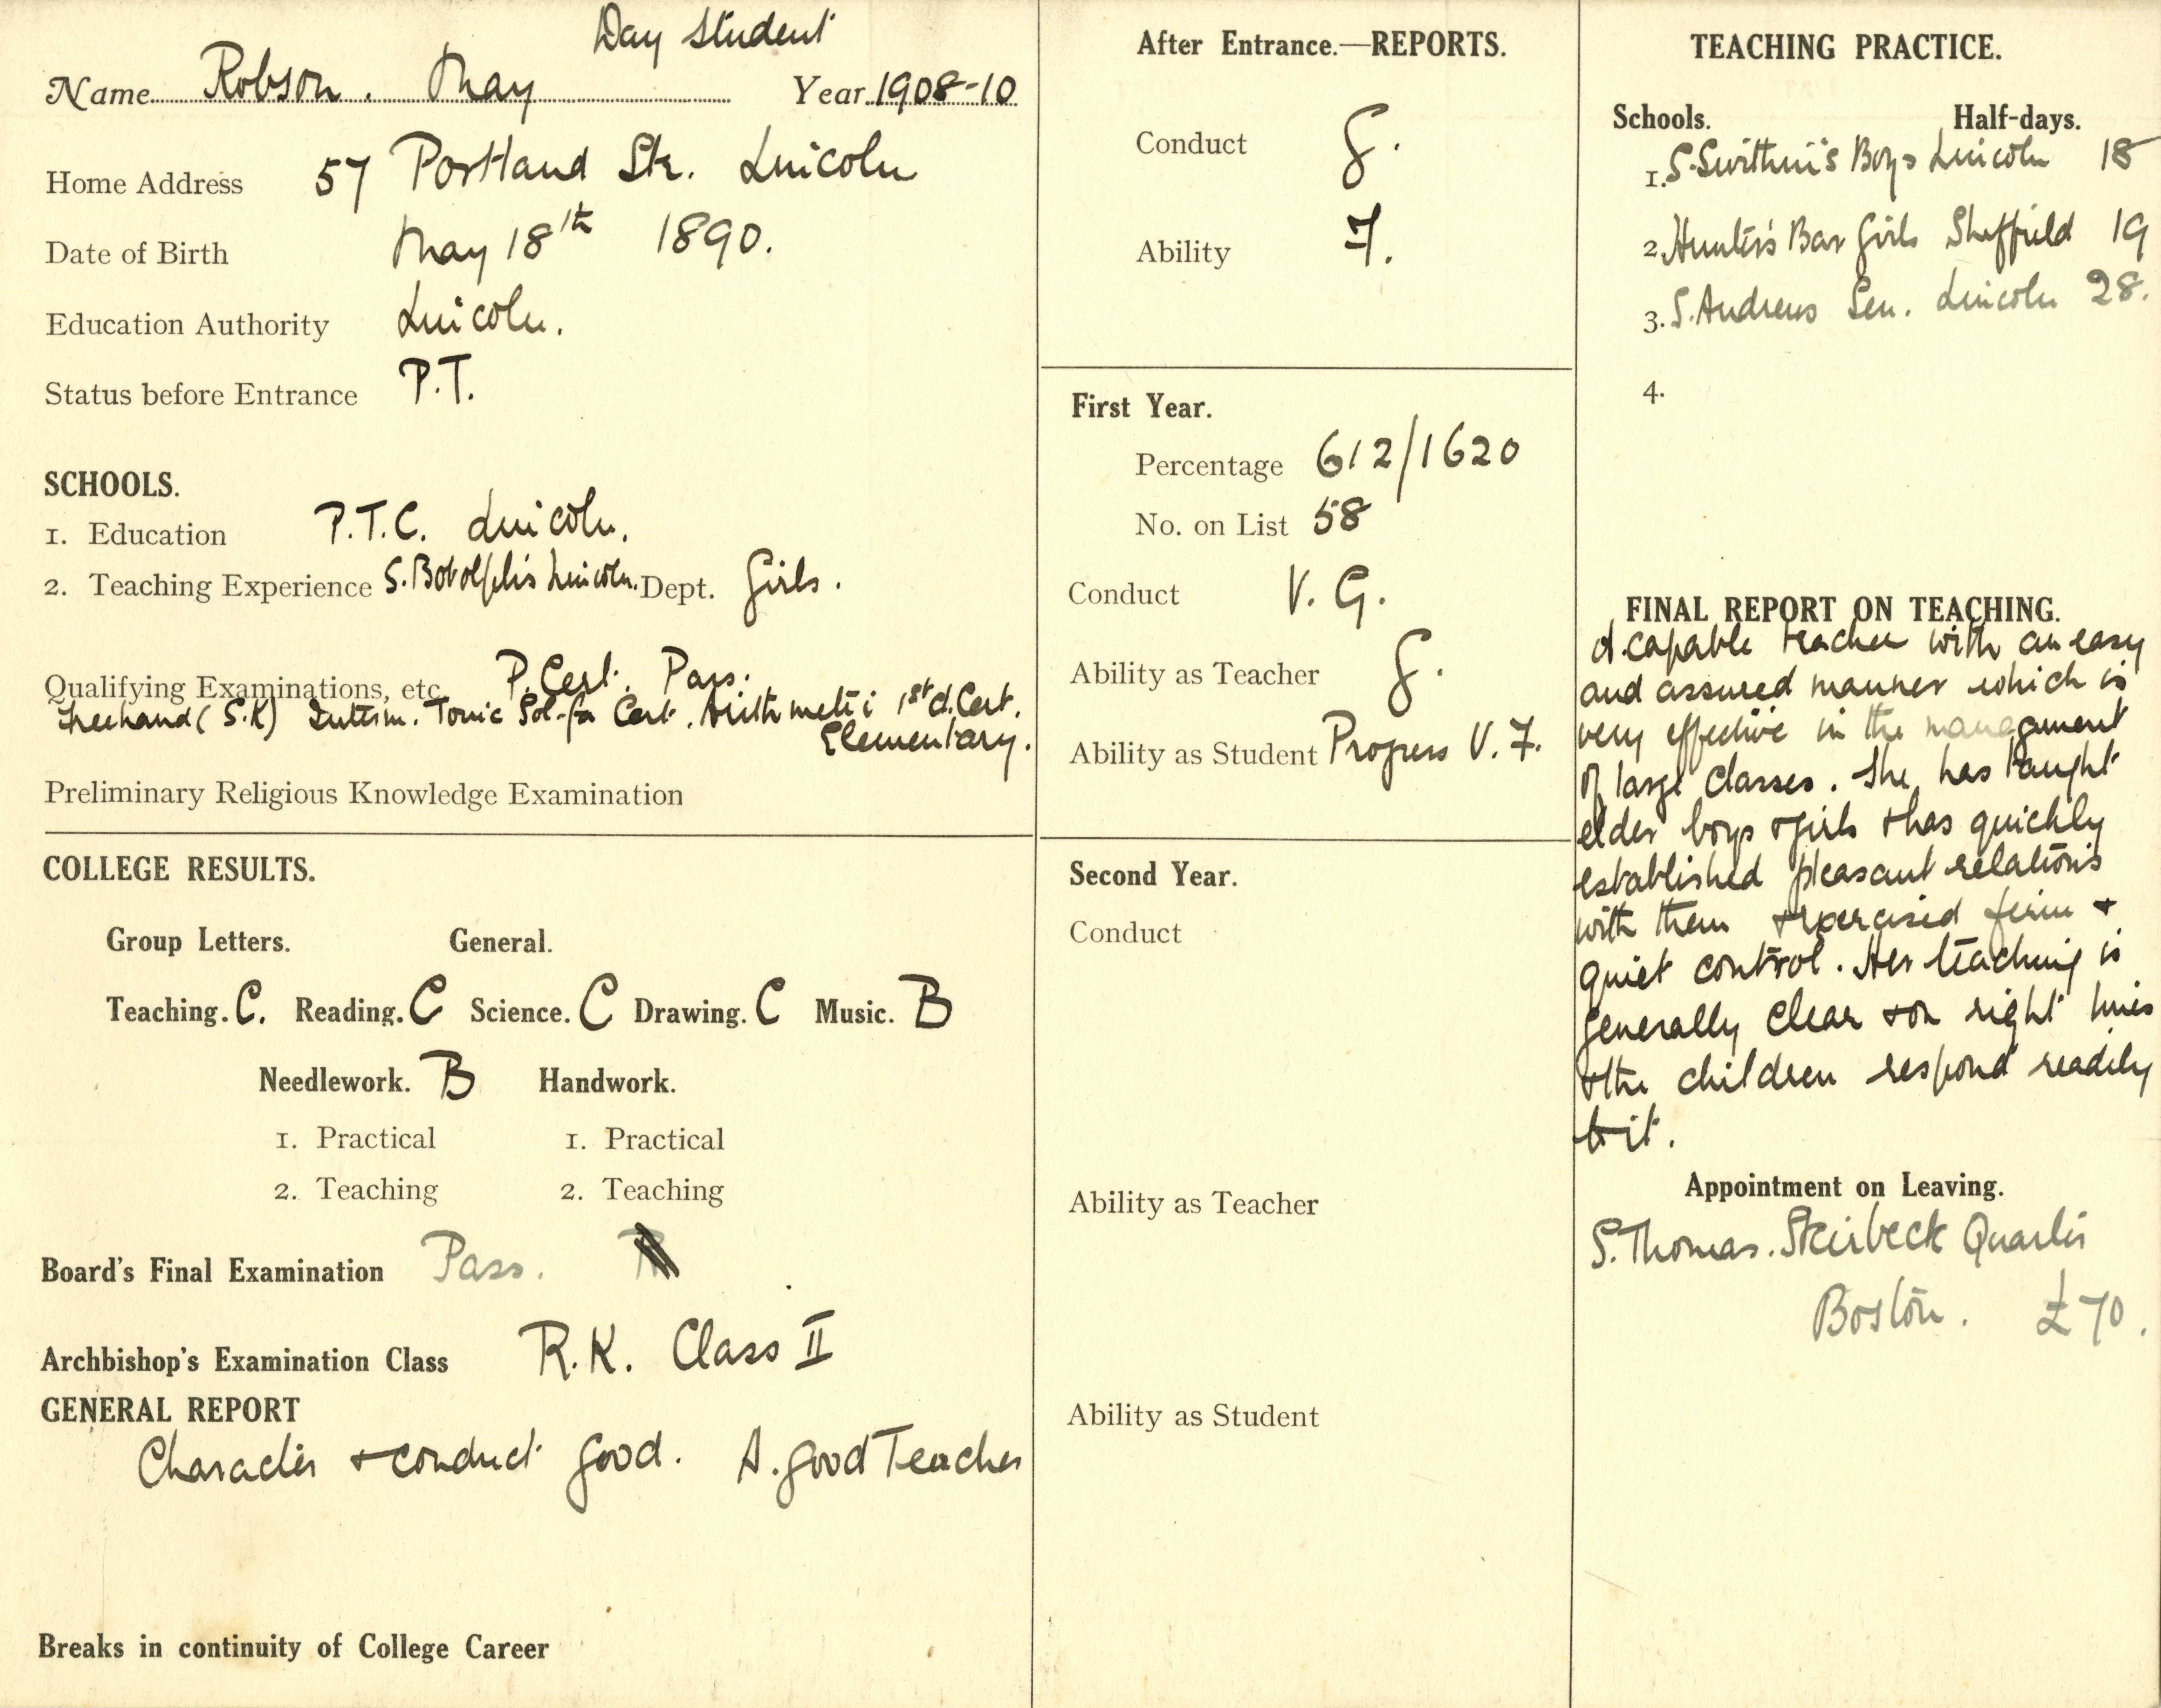 Day Student
Name Robson. May Year 1908-10
Home Address 57 Portland Str. Lincoln
Date of Birth May 18th 1890.
Education Authority Lincoln.
Status before Entrance P.T.
SCHOOLS.
1. Education P.T.C. Lincoln.
2. Teaching Experience S. Botolph's Lincoln. Dept. Girls.
Qualifying Examinations, etc. P. Cert. Pass.
Freehand (S.K) Interm. Tonic Sol-fa Cert. Arithmetic 1st Cl. Cert.
Elementary.
Preliminary Religious Knowledge Examination
COLLEGE RESULTS.
Group Letters. General.
Teaching. C. Reading. C Science. C Drawing. C Music. B
Needlework. B Handwork.
1. Practical 1. Practical
2. Teaching 2. Teaching
Board's Final Examination Pass.
Archbishop's Examination Class R.K. Class II
GENERAL REPORT
Character + conduct good. A good Teacher
Breaks in continuity of College Career
After Entrance.—REPORTS.
Conduct G.
Ability F.
First Year.
Percentage 612/1620
No. on List 58
Conduct V. G.
Ability as Teacher G.
Ability as Student Progress V. F.
Second Year.
Conduct
Ability as Teacher
Ability as Student
TEACHING PRACTICE.
Schools. Half-days.
1. S. Swithin's Boys Lincoln 18
2. Hunter's Bar Girls Sheffield 19
3. S. Andrews Sen. Lincoln 28.
4.
FINAL REPORT ON TEACHING.
A capable teacher with an easy
and assured manner which is
very effective in the management
of large classes. She has taught
elder boys + girls + has quickly
established pleasant relations
with them + exercised firm +
quiet control. Her teaching is
generally clear + on right lines
+ the children respond readily
to it.
Appointment on Leaving.
S. Thomas. Skirbeck Quarter
Boston. £70.